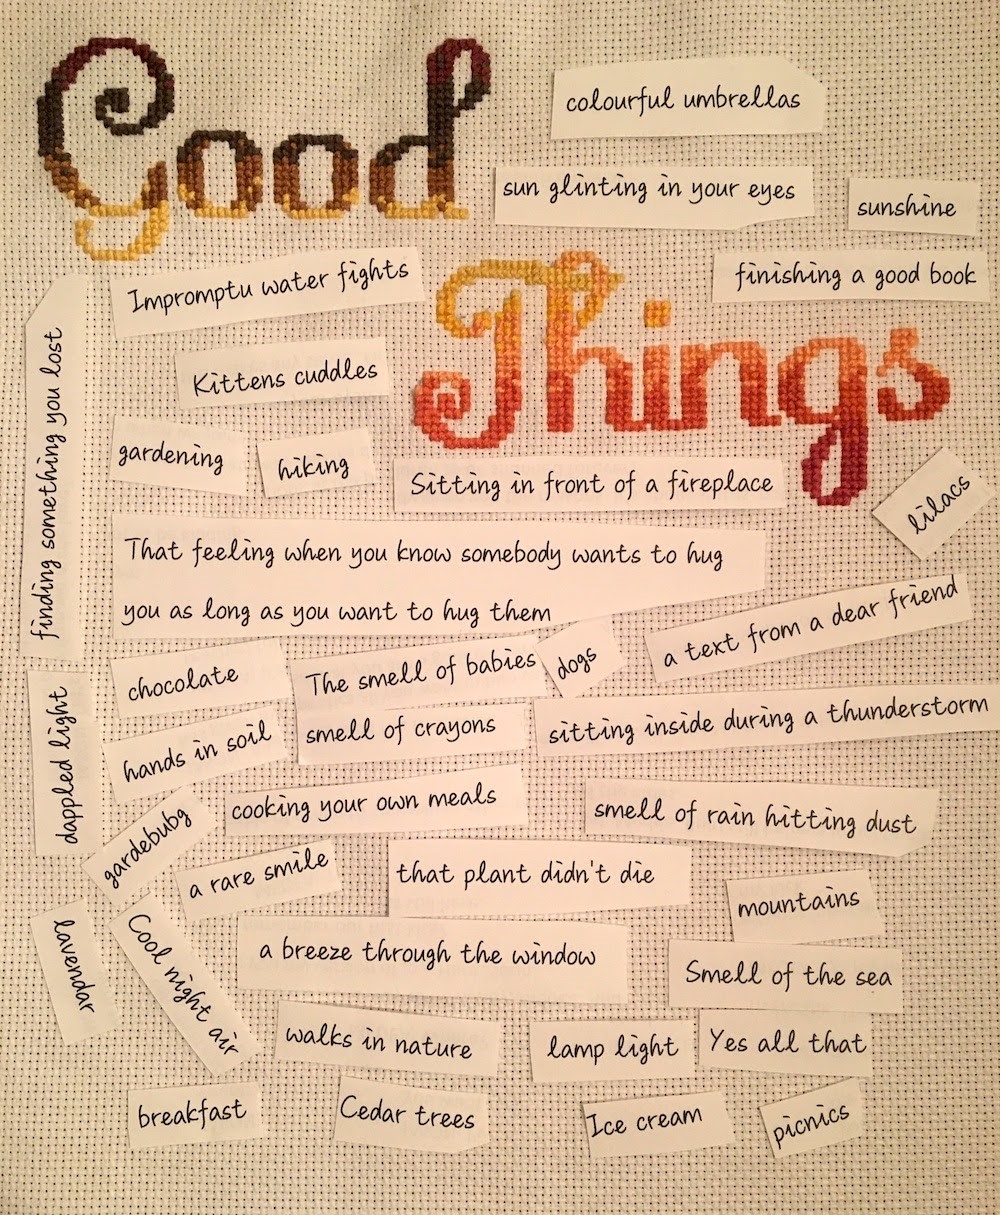 Good
colourful umbrellas
sun glinting in your eyes
sunshine
Things
finishing a good book
Impromptu water fights
finding something you lost
Kittens cuddles
gardening
hiking
Sitting in front of a fireplace
lilacs
That feeling when you know somebody wants to hug
you as long as you want to hug them
a text from a dear friend
chocolate
The smell of babies
dogs
dappled light
hands in soil
smell of crayons
sitting inside during a thunderstorm
gardebubg
cooking your own meals
smell of rain hitting dust
a rare smile
that plant didn't die
mountains
lavendar
Cool night air
a breeze through the window
Smell of the sea
walks in nature
lamp light
Yes all that
breakfast
Cedar trees
Ice cream
picnics